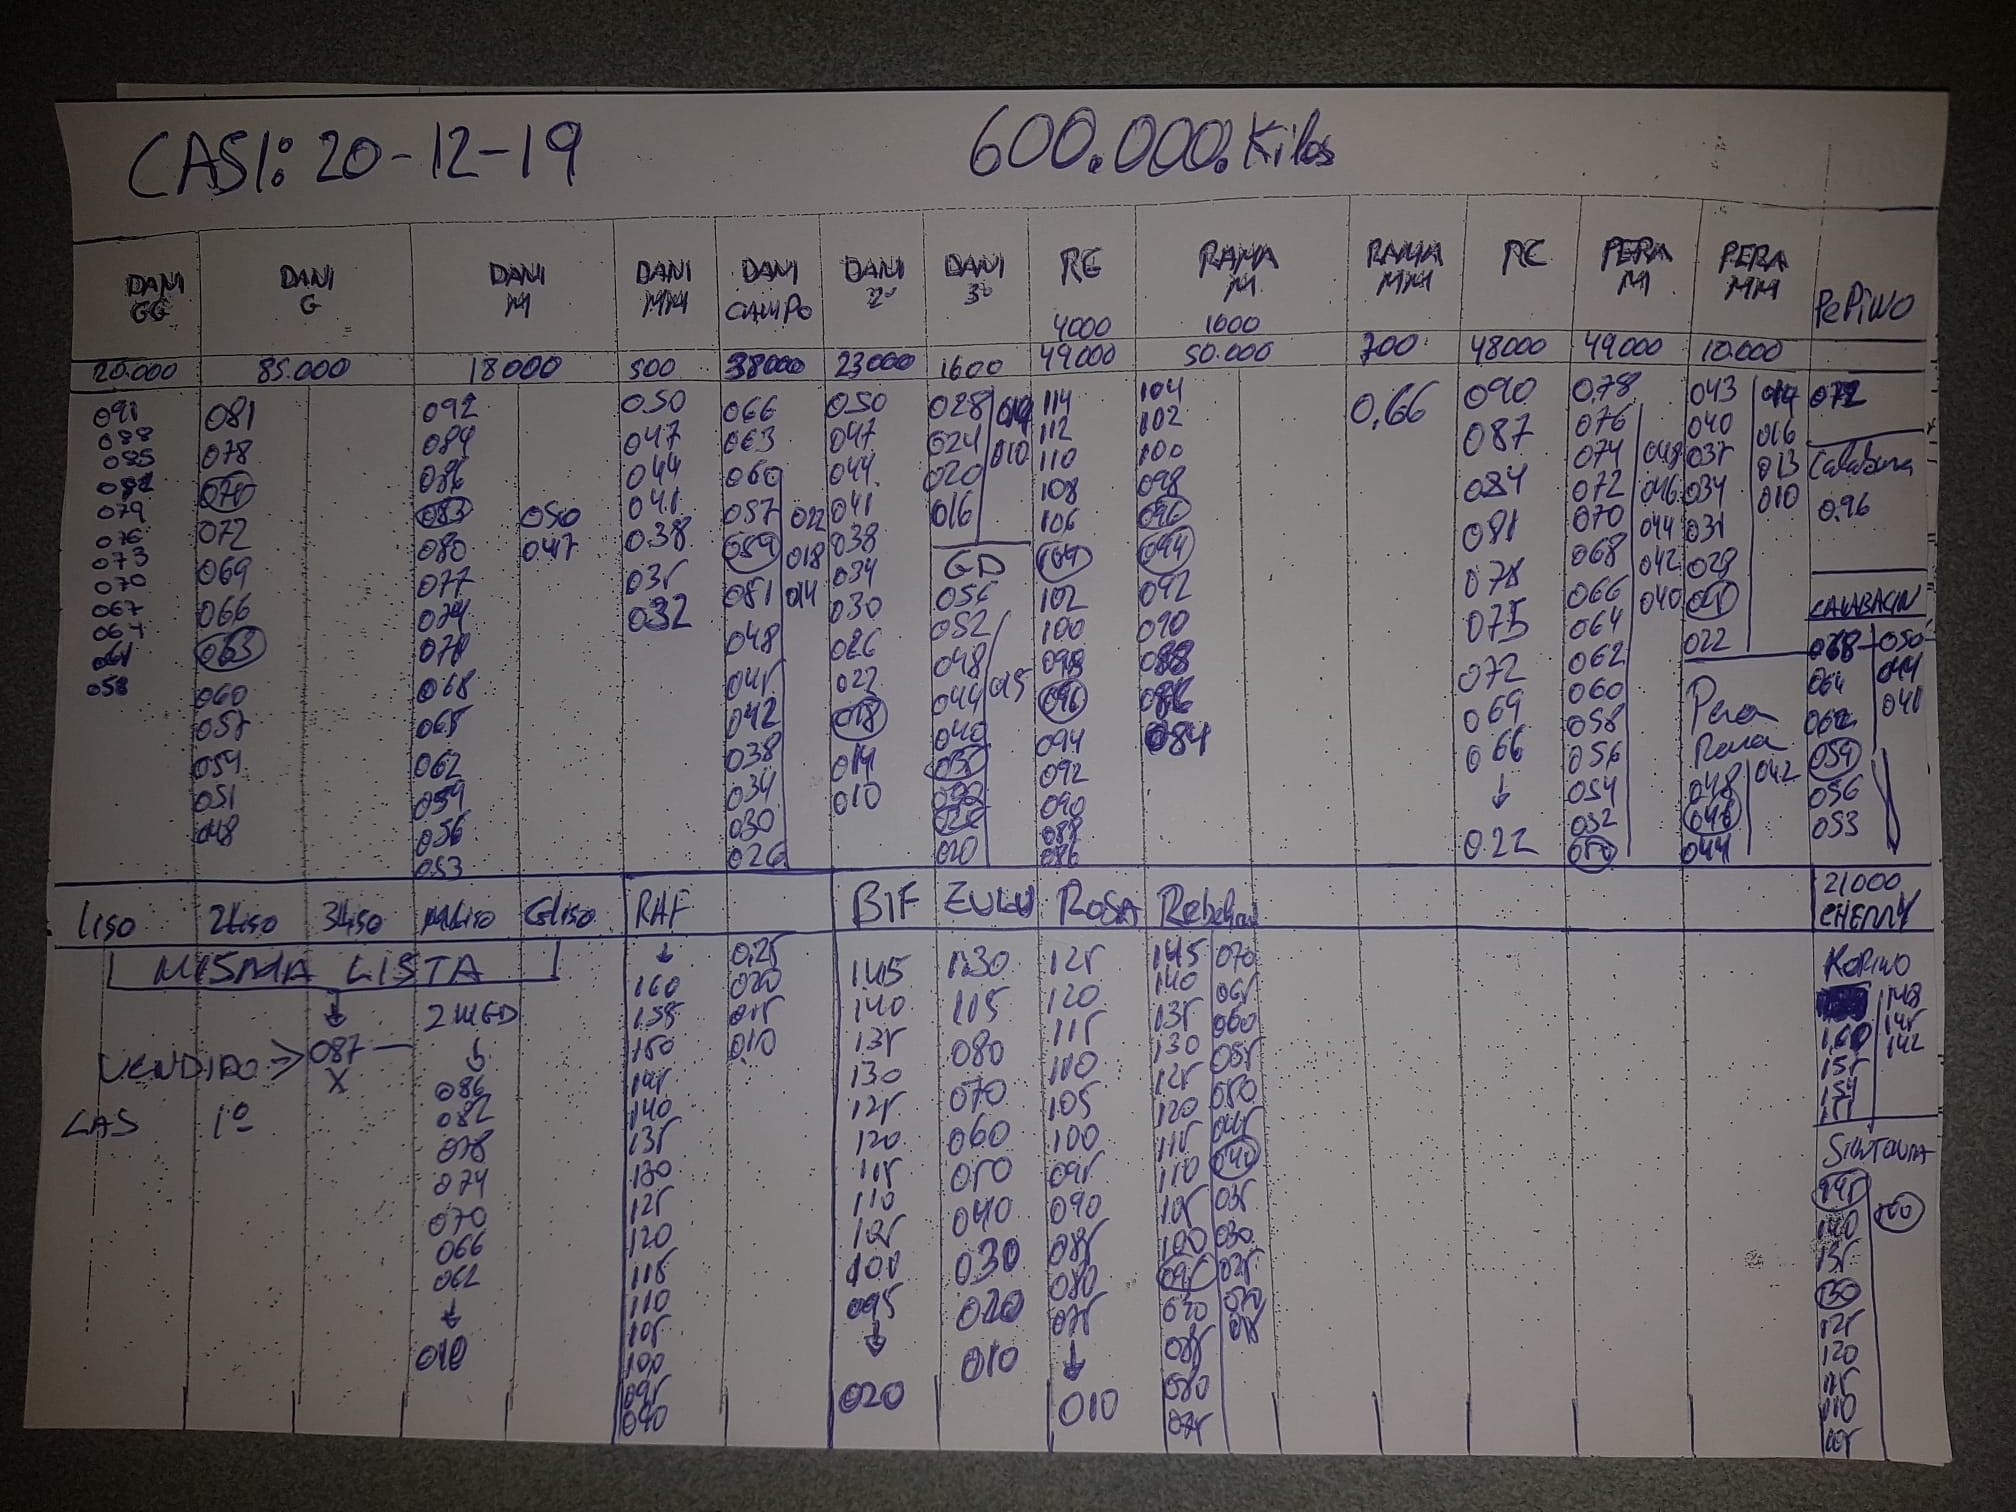 CASI: 20-12-19 600.000. Kilos
DANI GG DANI G DANI M DANI MM DANI CAMPO DANI 2ª DANI 3ª RG RAMA M RAMA MM PERA M PERA MM PePiNO
4000 1600
20.000 85.000 18000 500 38000 23000 1600 49000 50.000 700 48000 49000 10.000
091 081 092 050 066 050 028 114 104 0,66 090 078 043
088 078 047 063 047 024 010 112 102 087 076 040 016
085 086 044 060 044 020 110 100 084 074 048 037 013 Calabaza
082 072 083 050 041 057 022 041 016 108 098 081 072 046 034 010 0.96
079 069 080 047 038 018 038 106 096 078 070 044 031
076 066 077 035 014 034 GD 104 094 075 068 042 028
073 063 074 032 048 030 056 102 092 072 066 040 CALABACIN
070 060 045 026 052 100 090 069 064 022 068 050
067 057 068 042 022 048 098 088 066 062 Pera 064 044
064 054 065 038 018 044 015 096 086 ↓ 060 Rama 062 041
061 051 062 034 014 040 094 084 0.22 058 048 042 059
058 048 059 030 010 092 056 046 056
056 026 020 090 054 044 053
053 088 052
086 050
21000
CHERRY
Liso 2Liso 3Liso MLiso GLiso RAF BIF ZULU ROSA
MISMA LISTA
↓ 2MGD
VENDIDO => 087 —
X
LAS 1º
↓
086
082
078
074
070
066
062
↓
010
↓ 025
160 020
155 015
150 010
145
140
135
130
125
120
115
110
105
100
095
090
145
140
135
130
125
120
115
110
105
100
095
↓
020
130
115
080
070
060
050
040
030
020
010
125
120
115
110
105
100
095
090
085
080
075
↓
010
145 070
140 065
135 060
130 055
125 050
120 045
115 040
110 035
105 030
100 025
095 020
085
080
075
KOPINO
148
160 145
155 142
145 150
140
135
130
125
120
115
110
105